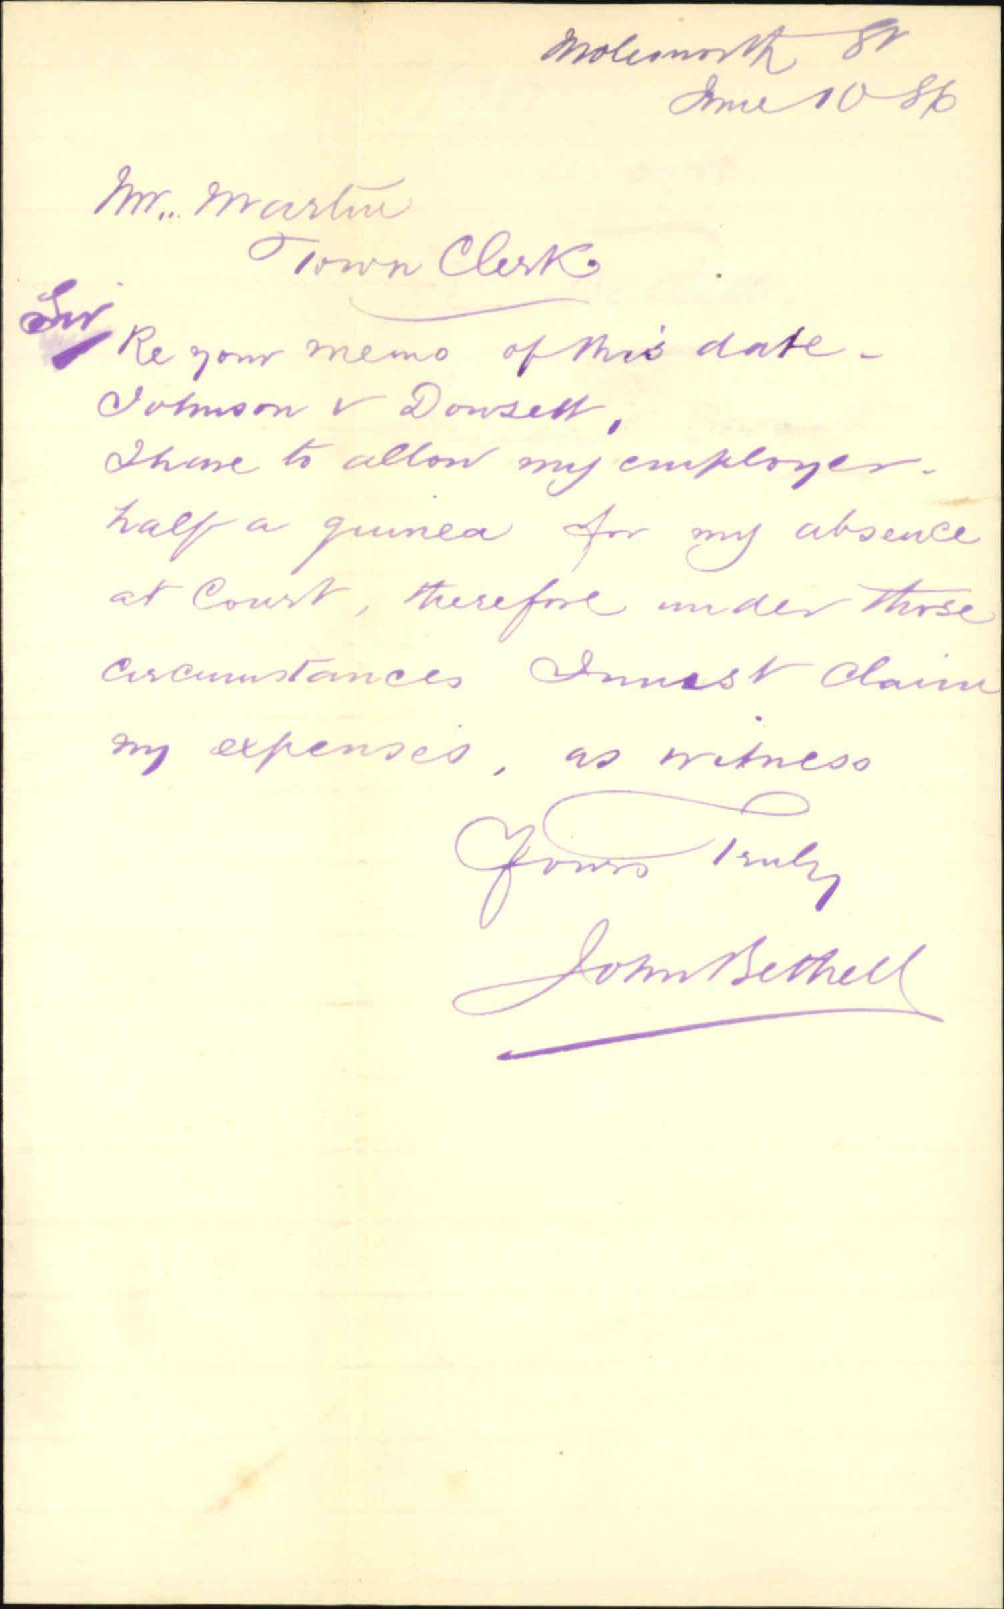 Molesworth St
June 10 86
Mr. Martin
Town Clerk.
Sir
Re your memo of this date -
Johnson v Dowsett,
I have to allow my employer -
half a guinea for my absence
at Court, therefore under those
circumstances I must claim
my expenses, as witness
Yours Truly
John Bethell